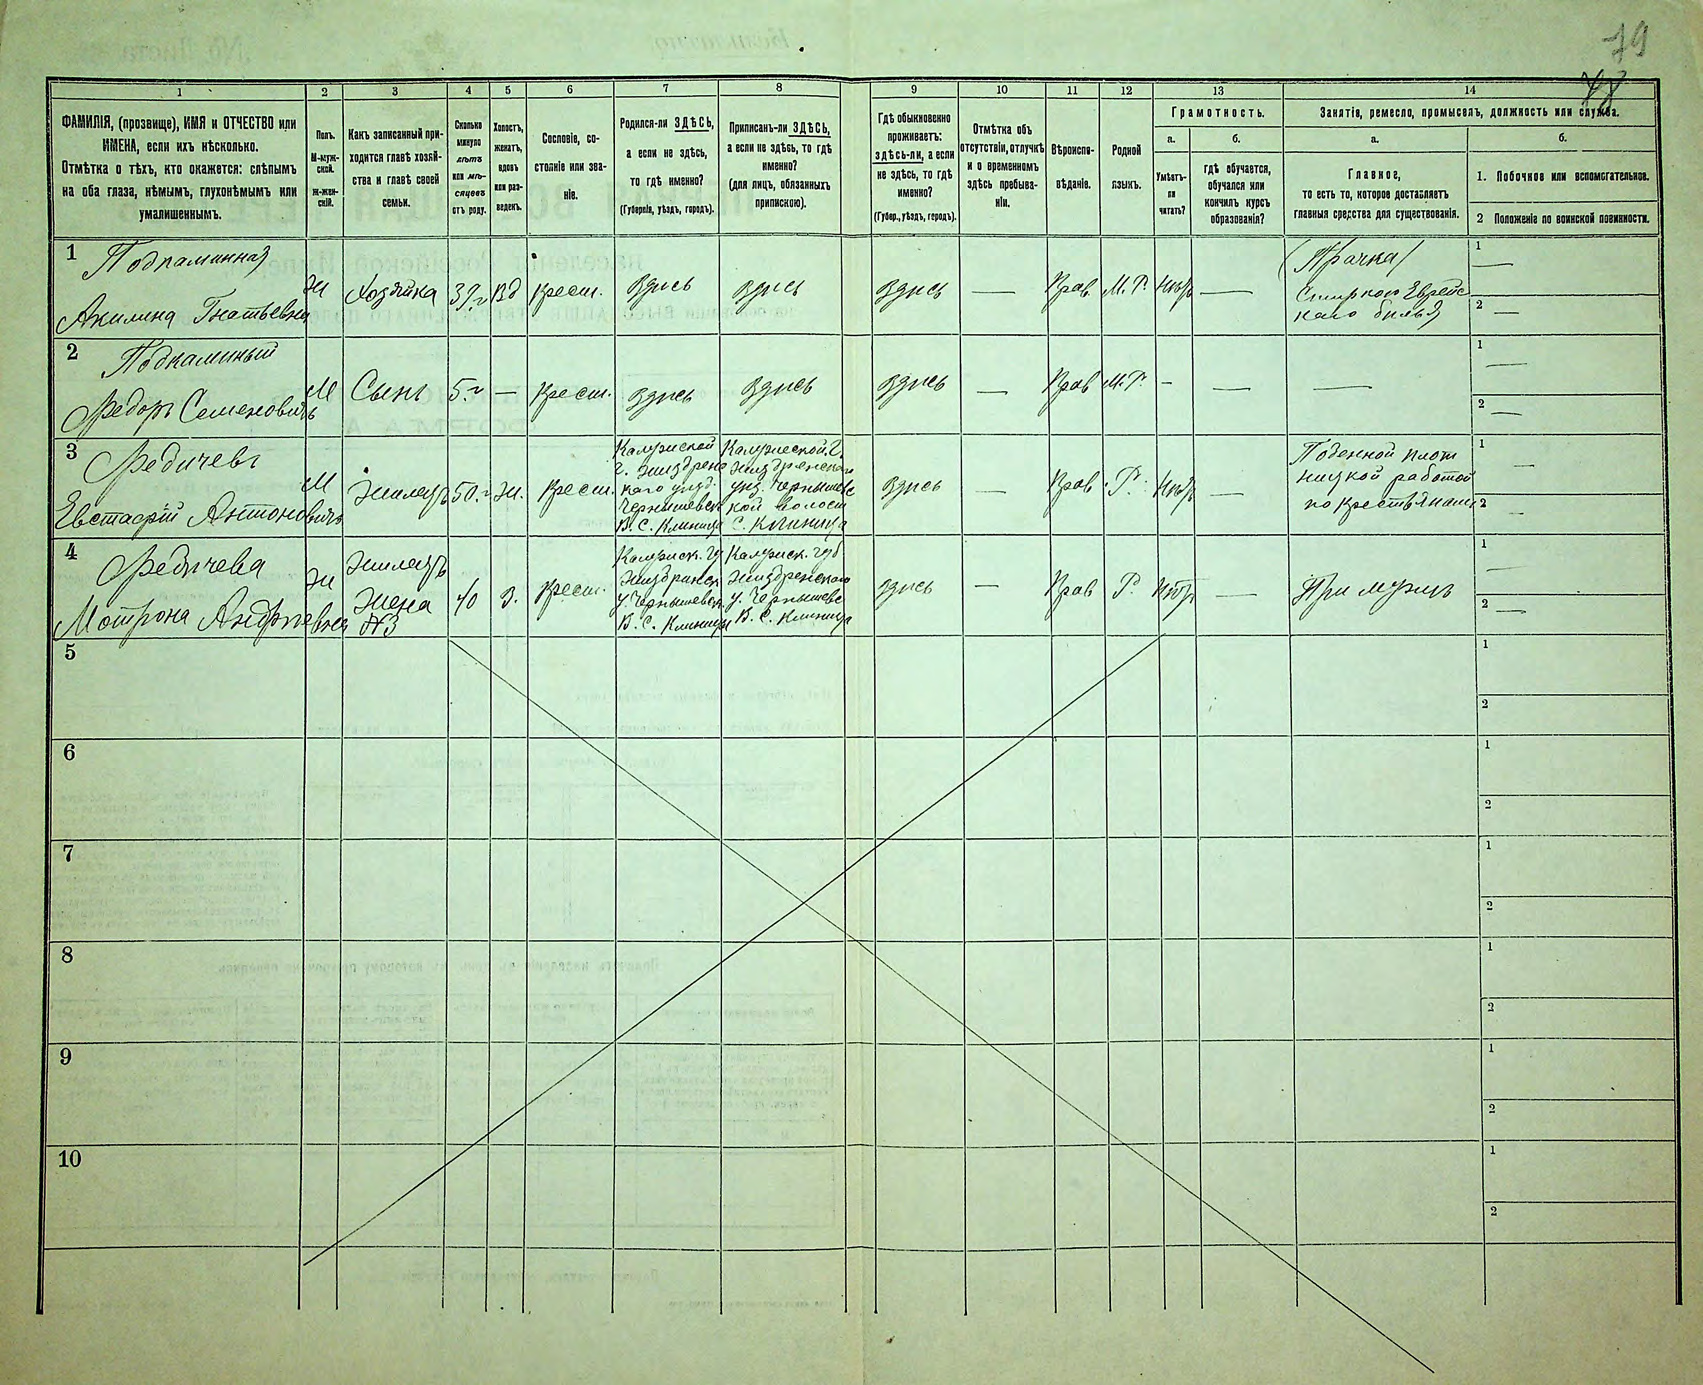 79
78
1
2
3
4
5
6
7
8
9
10
11
12
13
14
ФАМИЛІЯ, (прозвище), ИМЯ и ОТЧЕСТВО или
ИМЕНА, если ихъ нѣсколько.
Отмѣтка о тѣхъ, кто окажется: слѣпымъ
на оба глаза, нѣмымъ, глухонѣмымъ или
умалишеннымъ.
Полъ.
М-муж-
ской.
Ж-жен-
скій.
Какъ записанный при-
ходится главѣ хозяй-
ства и главѣ своей
семьи.
Сколько
минуло
лѣтъ
или мѣ-
сяцевъ
отъ роду.
Холостъ,
женатъ,
вдовъ
или раз-
веденъ.
Сословіе, со-
стояніе или зва-
ніе.
Родился-ли ЗДѢСЬ,
а если не здѣсь,
то гдѣ именно?
(Губернія, уѣздъ, городъ).
Приписанъ-ли ЗДѢСЬ,
а если не здѣсь, то гдѣ
именно?
(для лицъ, обязанныхъ
припискою).
Гдѣ обыкновенно
проживаетъ:
здѣсь-ли, а если
не здѣсь, то гдѣ
именно?
(Губер., уѣздъ, городъ).
Отмѣтка объ
отсутствіи, отлучкѣ
и о временномъ
здѣсь пребыва-
ніи.
Вѣроиспо-
вѣданіе.
Родной
языкъ.
Грамотность.
а.
Умѣетъ-
ли
читать?
б.
гдѣ обучается,
обучался или
кончилъ курсъ
образованія?
Занятія, ремесло, промыселъ, должность или служба.
а.
Главное,
то есть то, которое доставляетъ
главныя средства для существованія.
б.
1. Побочное или вспомогательное.
2 Положеніе по воинской повинности.
1
Подкаминная
Акилина Гнатьевна
Ж
Хозяйка
39 г
Вд
Крест.
Здѣсь
Здѣсь
Здѣсь
—
Прав.
М. Р.
Нѣтъ
—
(Прачка)
Стиркою Еврейс
каго бѣлья
1 —
2 —
2
Подкаминый
Федоръ Семеновичъ
М
Сынъ
5. г
—
Крест.
Здѣсь
Здѣсь
Здѣсь
—
Прав
М. Р.
-
—
—
1 —
2 —
3
Федичевъ
Евстафій Антоновичъ
М
Жилецъ
50. г
Ж.
Крест.
Калужской
Г. Жиздренс
каго уѣзд.
Чернышевск
В. С. Клинцы
Калужской Г.
Жиздренскаго
уѣз. Чернышевс
кой волости
С. Клинцы
Здѣсь
—
Прав
Р.
Нѣтъ
—
Поденной плот
ницкой работой
по крестьянамъ
1 —
2 —
4
Федичева
Мотрона Андреевна
Ж
Жилецъ
Жена
№3
40
З.
Крест.
Калужск. Гу
Жиздринск
У. Чернышевск.
В. С. Клинцы
Калужск. губ
Жиздренскаго
у. Чернышевс
В. С. Клинцы
Здѣсь
—
Прав
Р.
Нѣтъ
—
При мужѣ
1 —
2 —
5
1
2
6
1
2
7
1
2
8
1
2
9
1
2
10
1
2